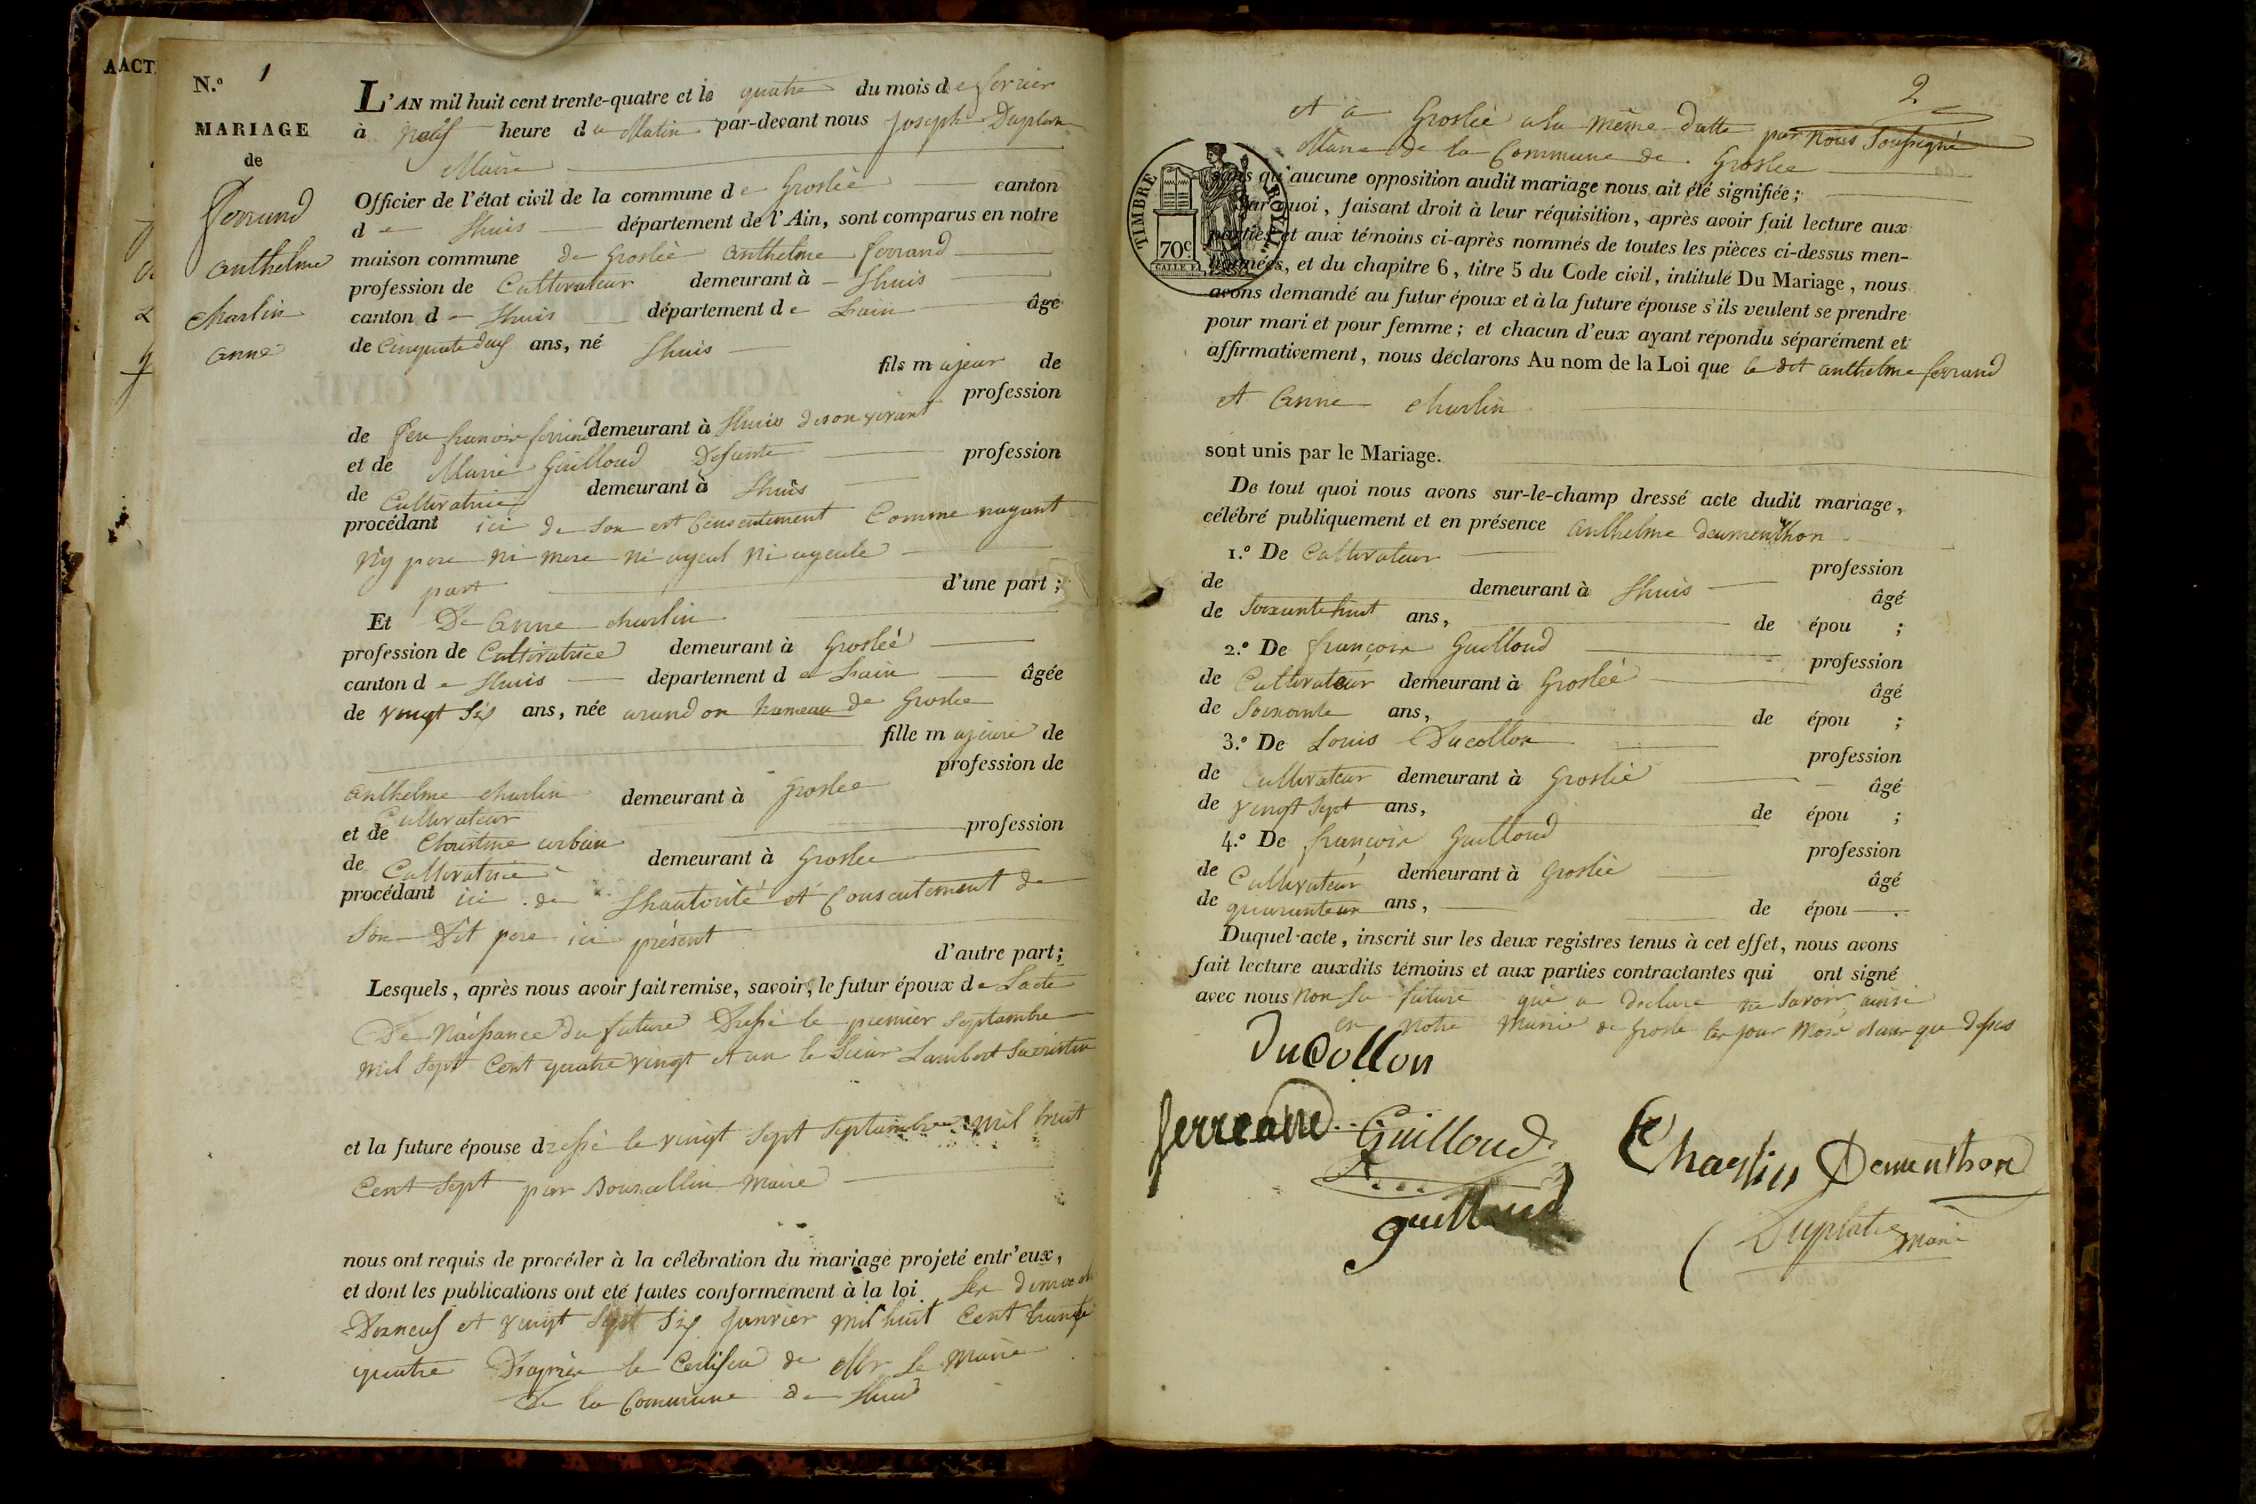 AACT.
N.º 1
MARIAGE
de
ferrand
anthelme
charlin
anne
L'AN mil huit cent trente-quatre et le quatre du mois de fevrier
à neuf heure du Matin par-devant nous Joseph Duplatre
Maire
Officier de l'état civil de la commune de Groslée canton
de Lhuis département de l'Ain, sont comparus en notre
maison commune de Groslée anthelme ferrand
profession de Cultivateur demeurant à Lhuis
canton de Lhuis département de Lain âgé
de Cinquante deux ans, né Lhuis
fils majeur de
profession
de feu francois ferrand demeurant à Lhuis de son vivant
et de Marie Guilloud Defunte profession
de Cultivatrice demeurant à Lhuis
procédant ici de son Consentement Comme nayant
ny pere ni mere ni ayeul ni ayeule
part d'une part ;
Et De anne charlin
profession de Cultivatrice demeurant à Groslée
canton de Lhuis département de Lain âgée
de vingt six ans, née arandon hameau de Groslee
fille majeure de
profession de
anthelme charlin demeurant à Groslee
Cultivateur
et de Christine urbain profession
de Cultivatrice demeurant à Groslee
procédant ici de Lhautorité et Consentement de
Son Dit pere ici présent
d'autre part ;
Lesquels, après nous avoir fait remise, savoir, le futur époux de Lacte
De Naissance du future Dressé le premier Septembre
mil Sept Cent quatre vingt et un le Sieur Lambert Sacristin
et la future épouse dressé le vingt Sept Septembre mil huit
Cent Sept par Bourcellin maire
nous ont requis de procéder à la célébration du mariage projeté entr'eux,
et dont les publications ont été faites conformément à la loi Les dimanche
Dixneuf et vingt six Janvier mil huit Cent trente
quatre Draprés le Certificat de Mr Le Maire
De la Commune de Lhuis
2
et a Groslée a la même datte par nous Soussigné
Maire de la Commune de Groslee
sans qu'aucune opposition audit mariage nous ait été signifiée ;
Par quoi, faisant droit à leur réquisition, après avoir fait lecture aux
parties et aux témoins ci-après nommés de toutes les pièces ci-dessus men-
tionnées, et du chapitre 6, titre 5 du Code civil, intitulé Du Mariage, nous
avons demandé au futur époux et à la future épouse s'ils veulent se prendre
pour mari et pour femme ; et chacun d'eux ayant répondu séparément et
affirmativement, nous déclarons Au nom de la Loi que le dit anthelme ferrand
et anne charlin
sont unis par le Mariage.
TIMBRE ROYAL
70c
De tout quoi nous avons sur-le-champ dressé acte dudit mariage,
célébré publiquement et en présence anthelme deumenthon
1.º De Cultivateur profession
de demeurant à Lhuis âgé
de Soixante huit ans, de épou ;
2.º De françois Guilloud profession
de Cultivateur demeurant à Groslée âgé
de Soixante ans, de épou ;
3.º De Louis Ducollon profession
de Cultivateur demeurant à Groslée âgé
de vingt Sept ans, de épou ;
4.º De françois Guilloud profession
de Cultivateur demeurant à Groslée âgé
de quarante un ans, de épou .
Duquel acte, inscrit sur les deux registres tenus à cet effet, nous avons
fait lecture auxdits témoins et aux parties contractantes qui ont signé
avec nous non La future qui a déclaré ne Savoir ainsi
en notre Mairie de Groslé les jour Mois et an que dessus
Ducollon
ferrand
Guilloud
Charlin
Dementhon
guilloud
Duplatre
Maire